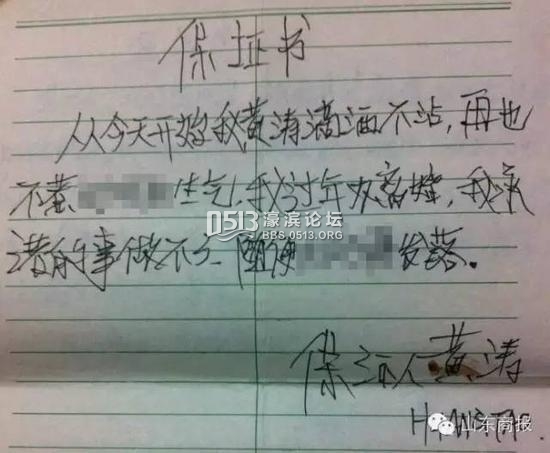 保证书
从从今天开始我黄涛滴酒不沾，再也
不惹生气，我过年离婚，我承
诺的事做不到随便发落。
0513 濠滨论坛
BBS.0513.ORG
保证人黄涛
山东商报